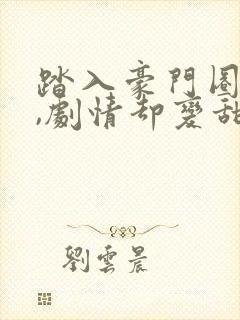 踏入豪門圈
,劇情却變甜
劉雲晨